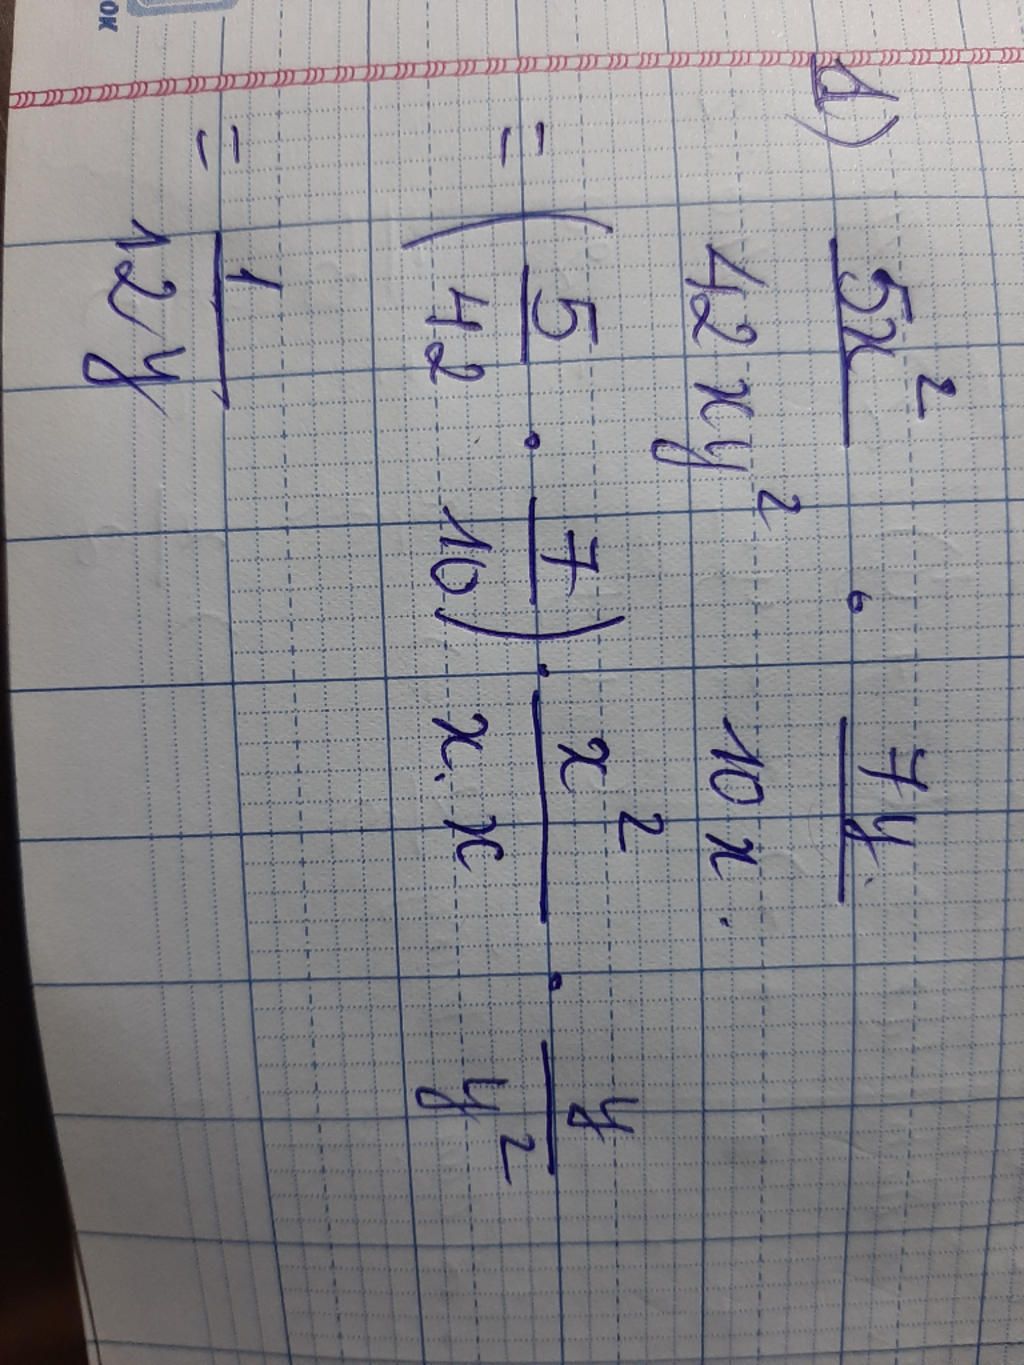 d) 5x² / 42xy² · 7y / 10x
= (5/42 · 7/10) · x² / x.x · y / y²
= 1 / 12y
OK